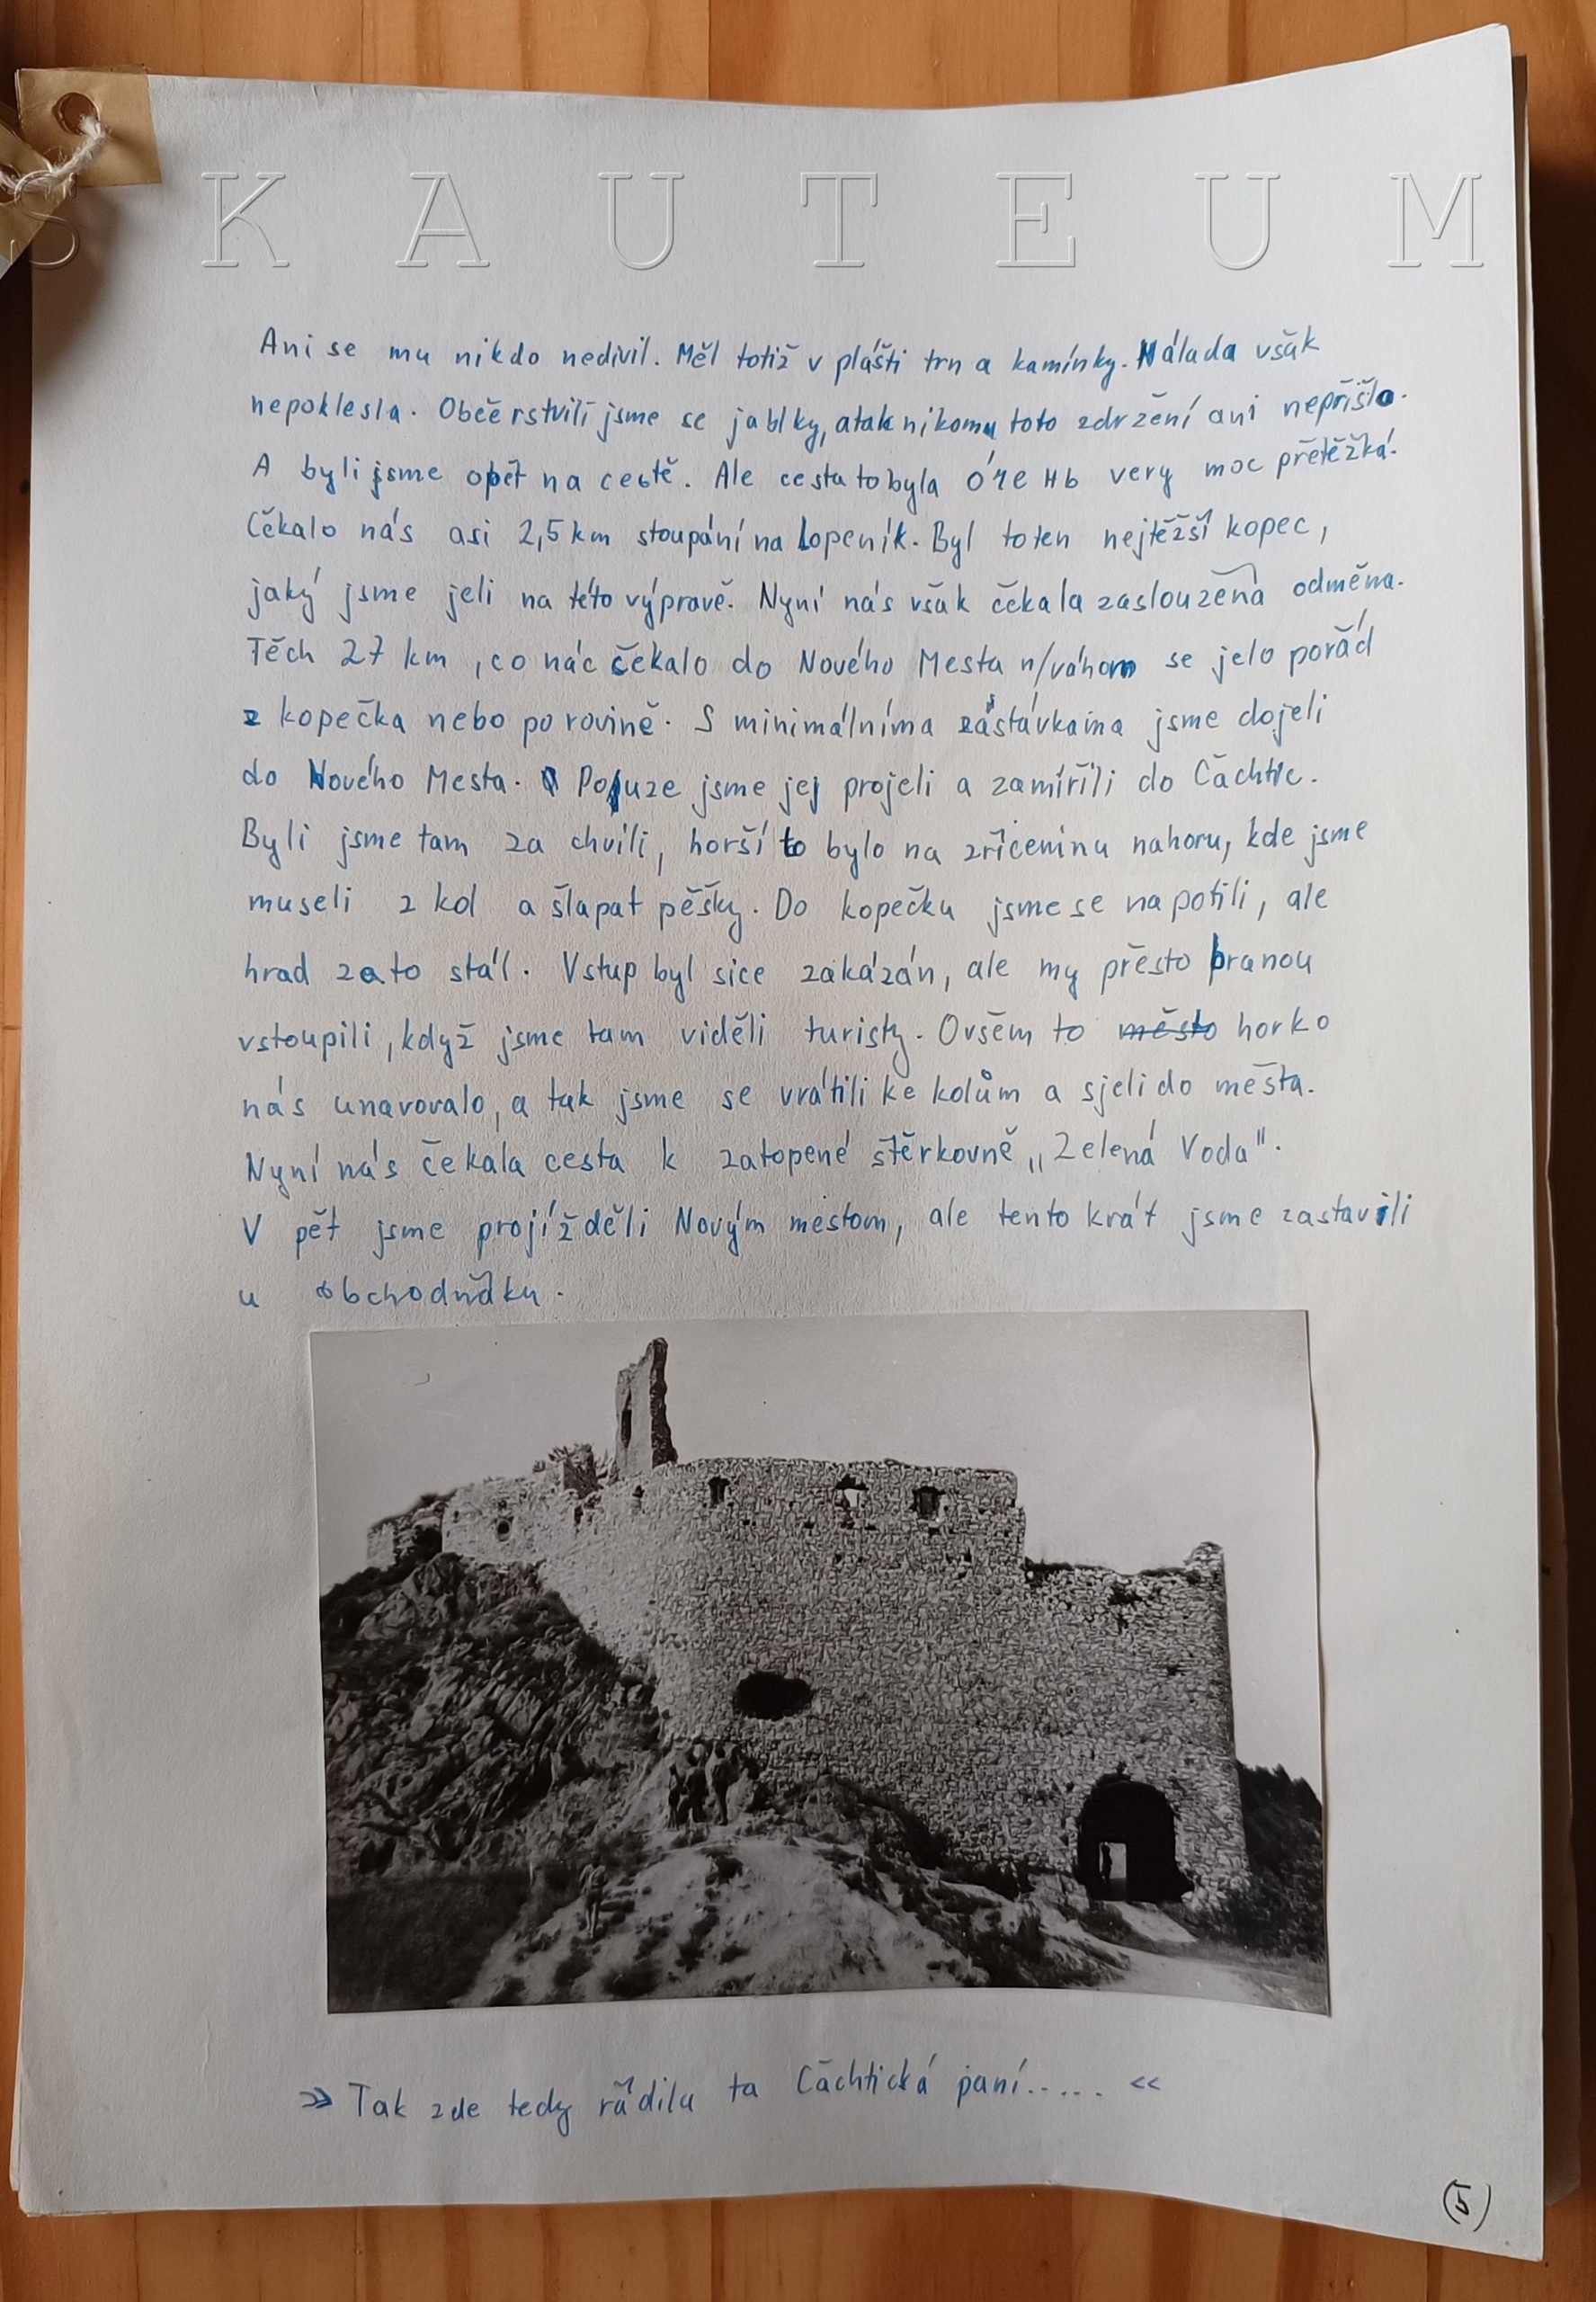 SKAUTEUM
Ani se mu nikdo nedivil. Měl totiž v plášti trn a kamínky. Nálada však
nepoklesla. Občerstvili jsme se jablky, a tak nikomu toto zdržení ani nepřišlo.
A byli jsme opět na cestě. Ale cesta to byla óчень very moc přetěžká.
Čekalo nás asi 2,5 km stoupání na Lopeník. Byl to ten nejtěžší kopec,
jaký jsme jeli na této výpravě. Nyní nás však čekala zasloužená odměna.
Těch 27 km, co nác čekalo do Nového Mesta n/váhom se jelo pořád
z kopečka nebo po rovině. S minimálníma zástávkama jsme dojeli
do Nového Mesta. Pouze jsme jej projeli a zamířili do Čachtic.
Byli jsme tam za chvíli, horší to bylo na zříceninu nahoru, kde jsme
museli z kol a šlapat pěšky. Do kopečku jsme se napotili, ale
hrad za to stál. Vstup byl sice zakázán, ale my přesto branou
vstoupili, když jsme tam viděli turisty. Ovšem to město horko
nás unavovalo, a tak jsme se vrátili ke kolům a sjeli do města.
Nyní nás čekala cesta k zatopené štěrkovně „Zelená Voda".
V pět jsme projížděli Novým mestom, ale tento krát jsme zastavili
u obchodňáku.
» Tak zde tedy řádila ta Čachtická paní..... «
(5)